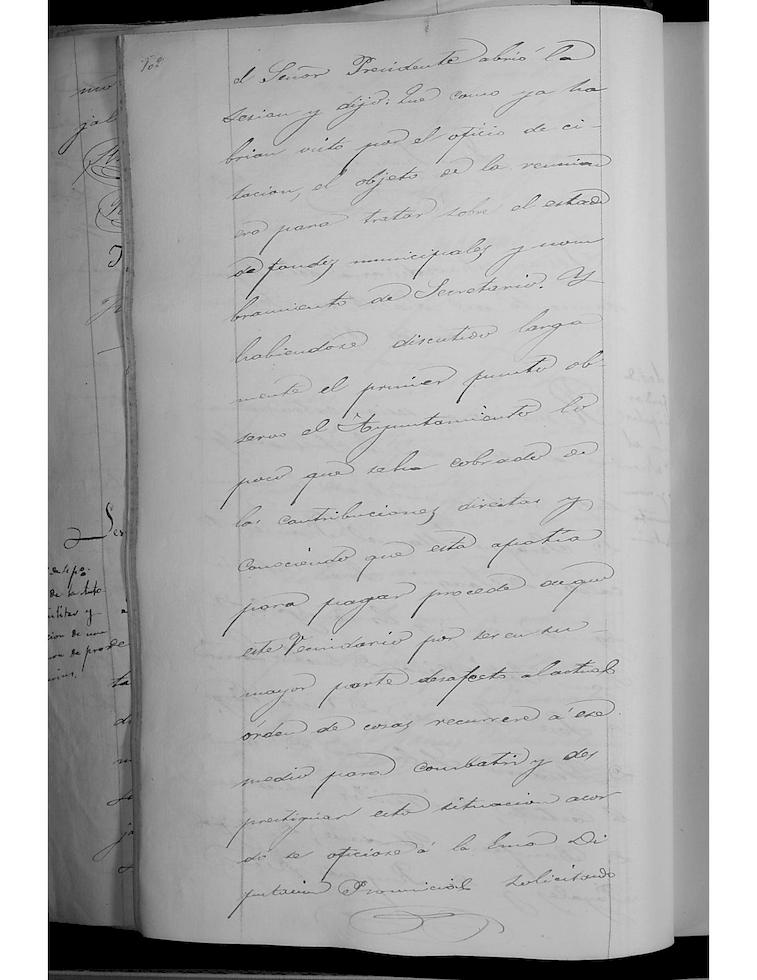 el Señor Presidente abrió la
sesion y dijo: Que como ya ha
brian visto por el oficio de ci-
tacion, el objeto de la reunion
era para tratar sobre el estado
de fondos municipales y nom
bramiento de Secretario. Y
habiendose discutido larga
mente el primer punto ob-
servo el Ayuntamiento lo
poco que seha cobrado de
las contribuciones directas y
Conociendo que esta apatia
para pagar procede deque
este Vecindario por ser en su
mayor parte desafecto alactual
órden de cosas recurrere á ese
medio para combatir y des
prestiguar esta situacion acor
dó se oficiase á la Ema Di
putacion Provincial solicitando